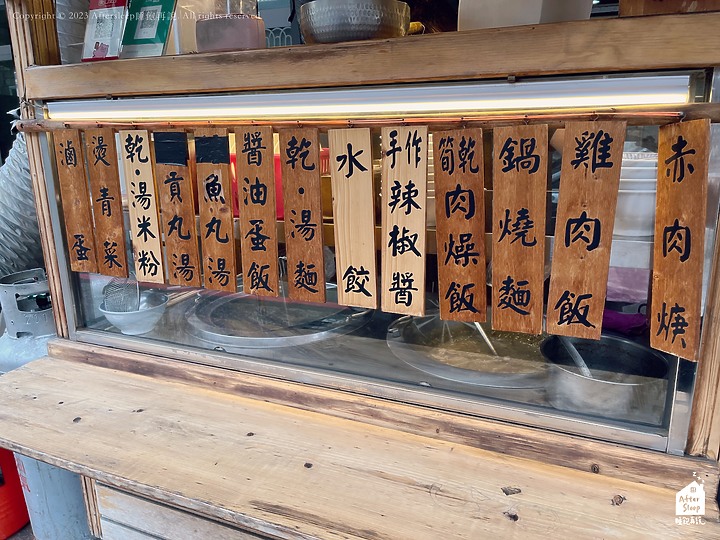 Copyright © 2023 Afterisleep睡飽再說 All rights reserved
滷蛋
燙青菜
乾・湯米粉
貢丸湯
魚丸湯
醬油蛋飯
乾・湯麵
水餃
手作辣椒醬
筍乾肉燥飯
鍋燒麵
雞肉飯
赤肉焿
After
Sleep
睡飽再說